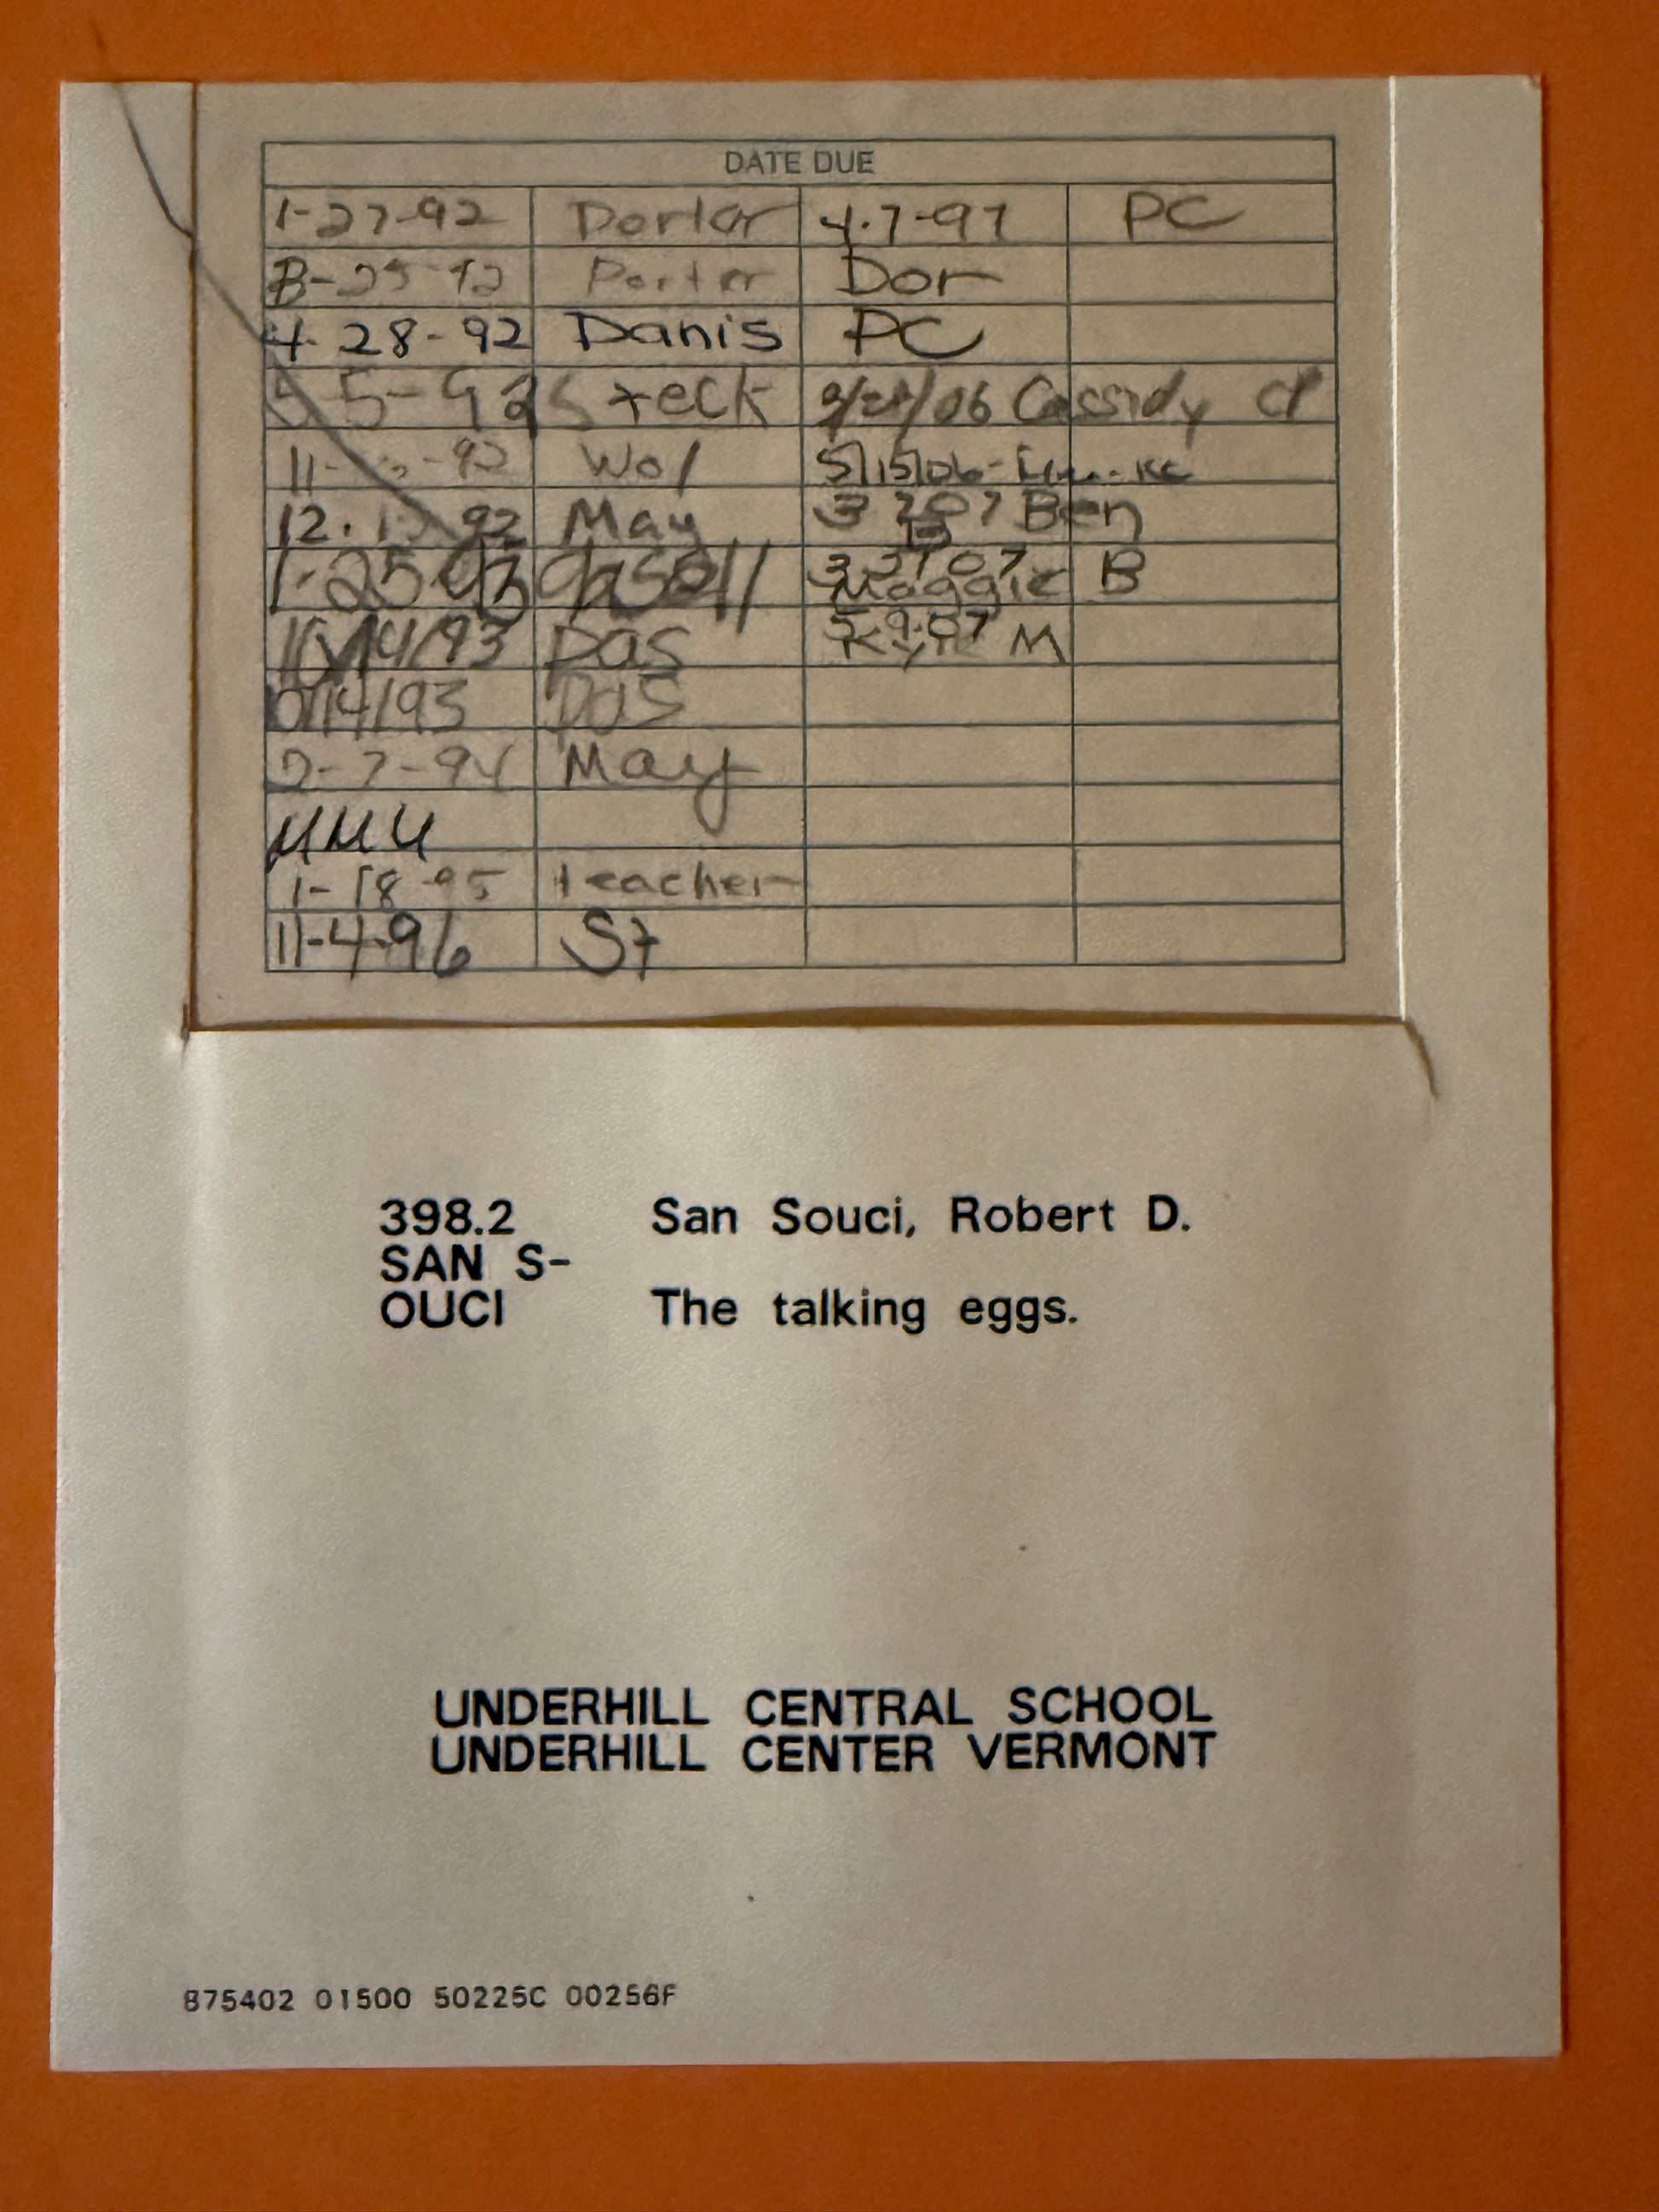 DATE DUE
1-27-92 Porter 4-7-97 PC
Porter Dor
4-28-92 Danis PC
5-5-92 Steck /06 Cassidy Cl
11- -92 Wol 5/15/06-
12. 92 May 3 7 07 Ben B
1-25-93 3 07 Maggie B
93 Das 5-9-07 Kyle M
0/14/93 Das
2-7-94 May
MMU
1-18-95 teacher
11-4-96 St
398.2 San Souci, Robert D.
SAN S-
OUCI The talking eggs.
UNDERHILL CENTRAL SCHOOL
UNDERHILL CENTER VERMONT
875402 01500 50225C 00256F